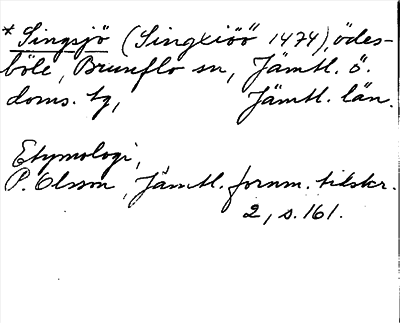 * Singsjö (Singxiöö 1474), ödes-
böle, Brunflo sn, Jämtl. ö.
doms. tg, Jämtl. län.
Etymologi,
P. Olsson, Jämtl. fornm. tidskr.
2, s. 161.